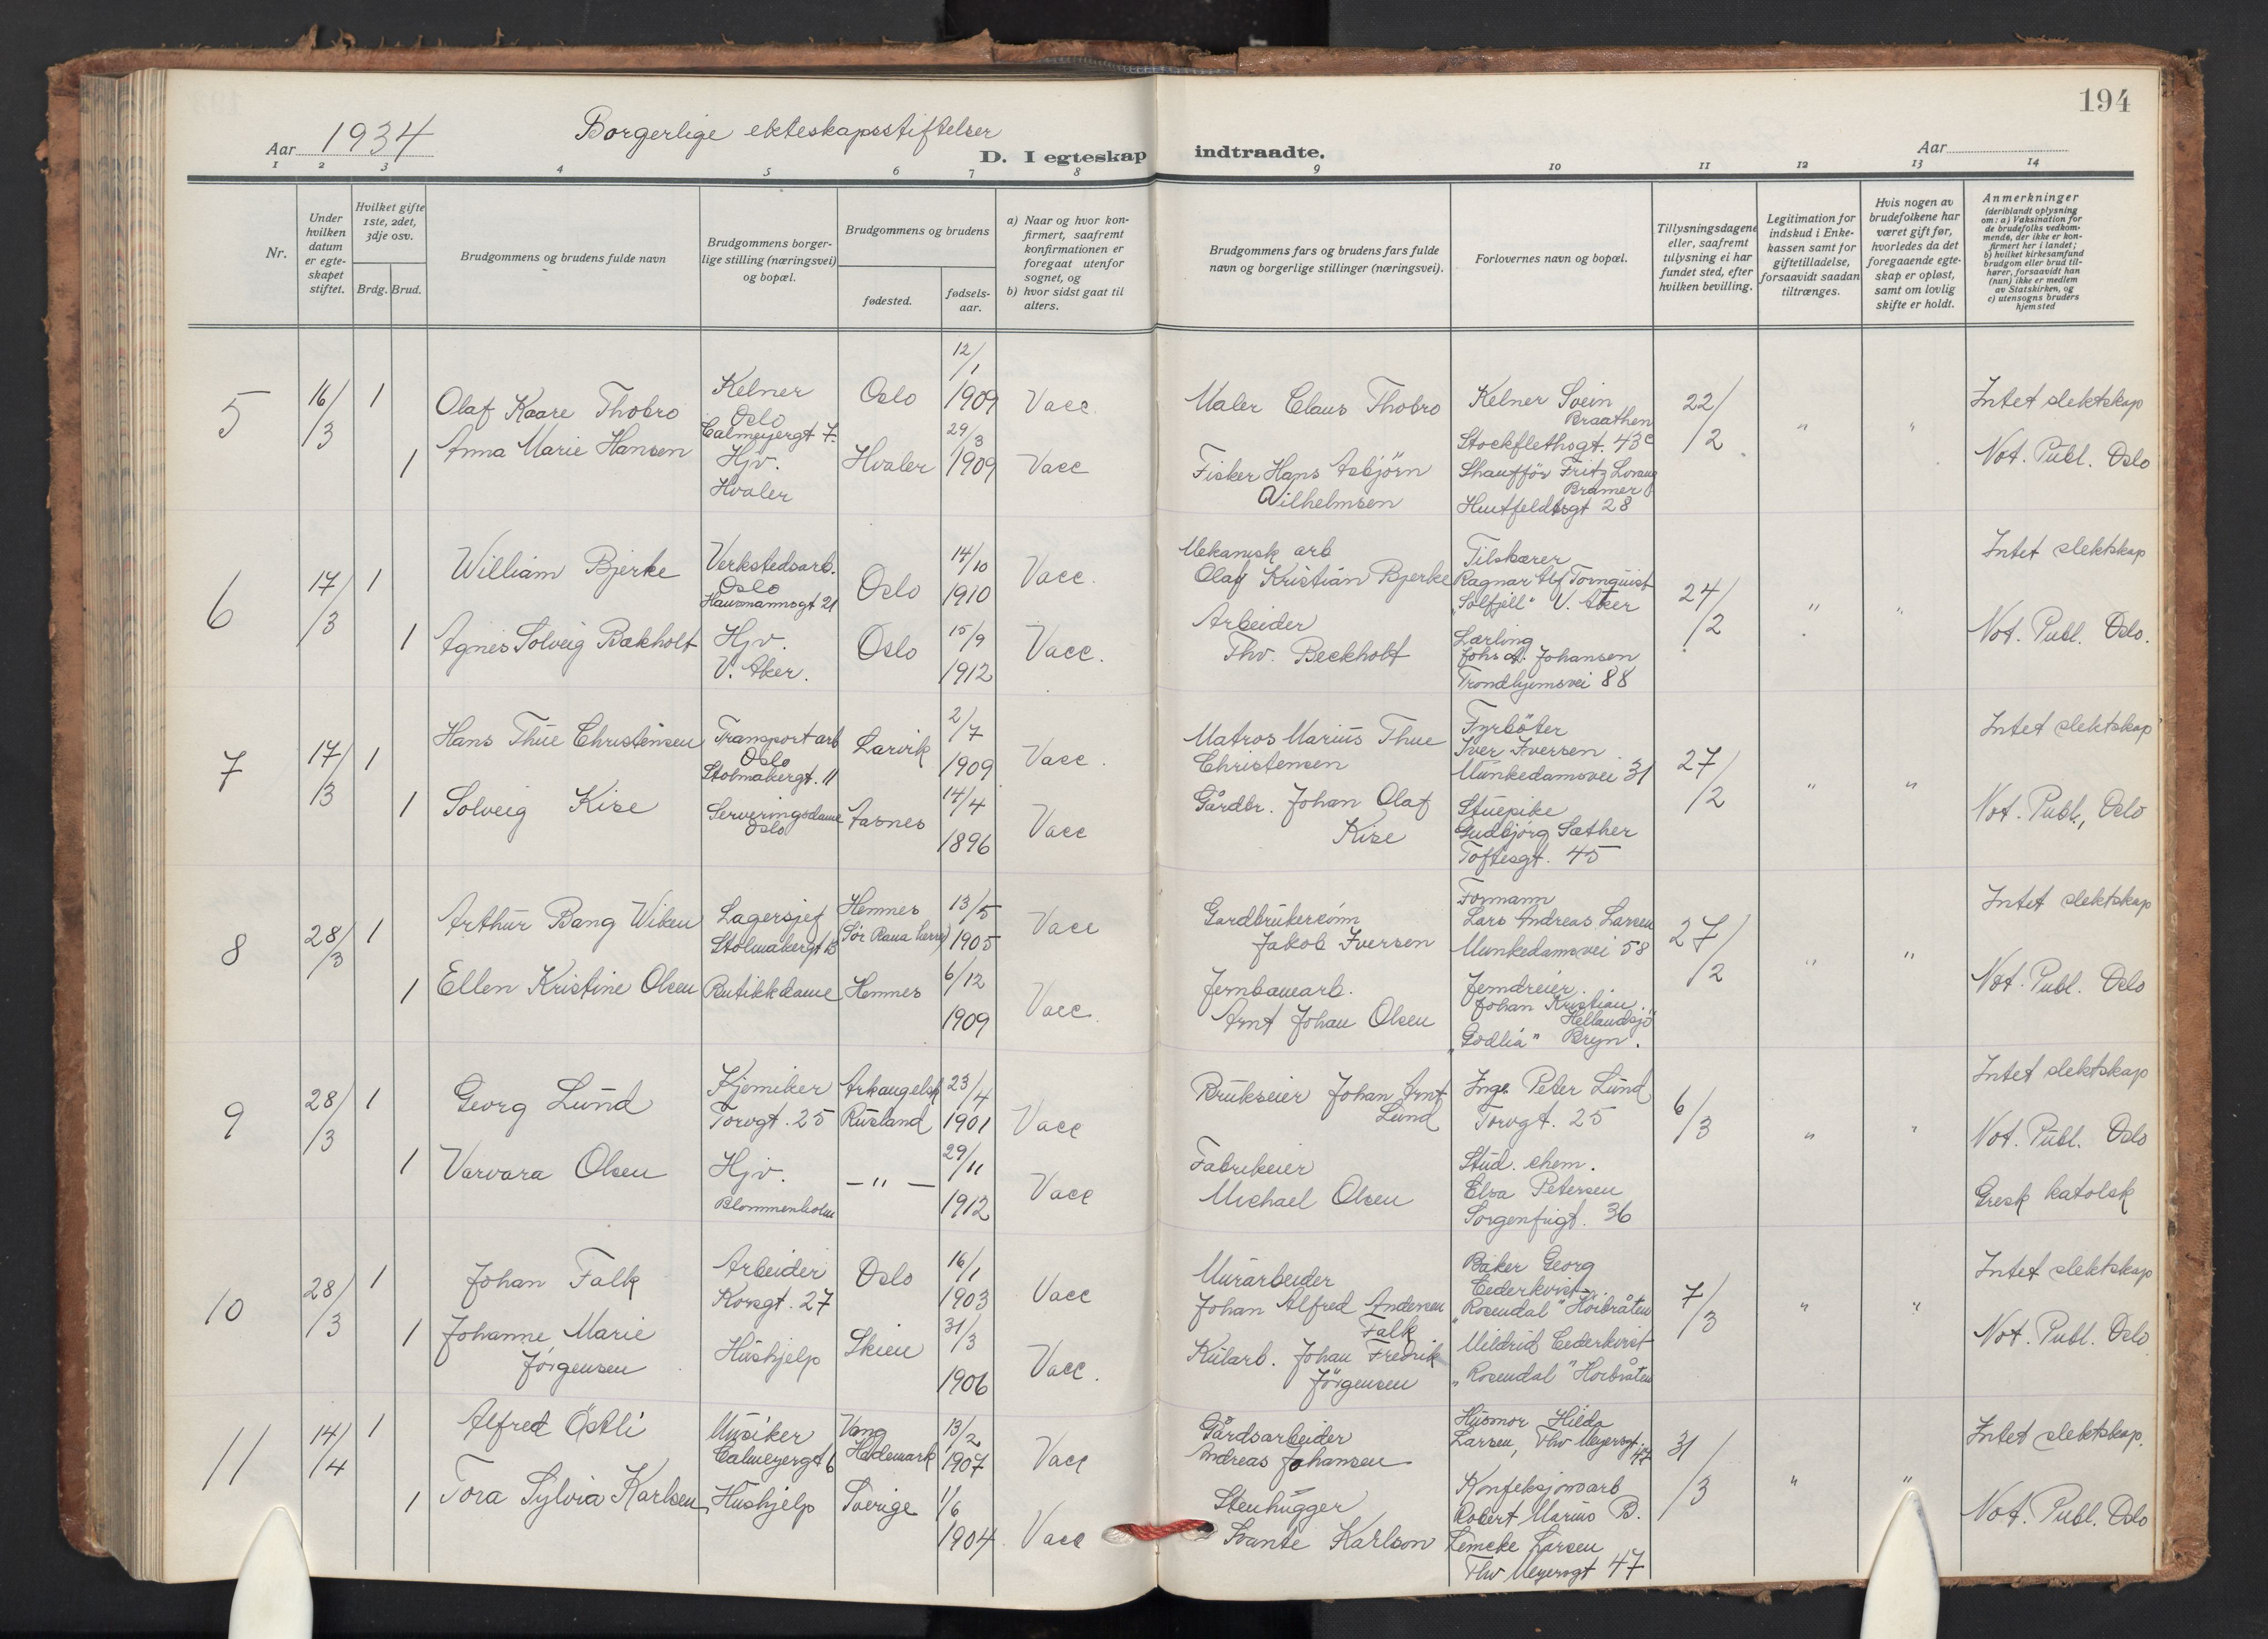 194
Aar 1934
Borgerlige ekteskapsstiftelser
D. I egteskap indtraadte.
Aar
1 2 3 4 5 6 7 8 9 10 11 12 13 14
Nr.
Under
hvilken
datum
er egte-
skapet
stiftet.
Hvilket gifte
1ste, 2det,
3dje osv.
Brdg. Brud.
Brudgommens og brudens fulde navn
Brudgommens borger-
lige stilling (næringsvei)
og bopæl.
Brudgommens og brudens
fødested.
fødsels-
aar.
a) Naar og hvor kon-
firmert, saafremt
konfirmationen er
foregaat utenfor
sognet, og
b) hvor sidst gaat til
alters.
Brudgommens fars og brudens fars fulde
navn og borgerlige stillinger (næringsvei).
Forlovernes navn og bopæl.
Tillysningsdagene
eller, saafremt
tillysning ei har
fundet sted, efter
hvilken bevilling.
Legitimation for
indskud i Enke-
kassen samt for
giftetilladelse,
forsaavidt saadan
tiltrænges.
Hvis nogen av
brudefolkene har
været gift før,
hvorledes da det
foregaaende egte-
skap er opløst,
samt om lovlig
skifte er holdt.
Anmerkninger
(deriblandt oplysning
om: a) Vaksination for
de brudefolks vedkom-
mende, der ikke er kon-
firmert her i landet;
b) hvilket kirkesamfund
brudgom eller brud til-
hører, forsaavidt han
(hun) ikke er medlem
av Statskirken, og
c) utensogns bruders
hjemsted
5
16/3
1
Olaf Kaare Thobro
Kelner
Oslo
Calmeyergt 7.
Oslo
12/1
1909
Vacc.
Maler Claus Thobro
Kelner Svein
Braathen
Stockflethsgt. 43c
22/2
"
"
Intet slektskap
1
Anna Marie Hansen
Hjv.
Hvaler
Hvaler
29/3
1909
Vacc
Fisker Hans Asbjörn
Wilhelmsen
Shafför Fritz
Bramer
Huitfeldtsgt 28
Not. Publ. Oslo
6
17/3
1
William Bjerke
Verkstedsarb.
Oslo
Hausmannsgt 21
Oslo
14/10
1910
Vacc.
Mekanisk arb
Olaf Kristian Bjerke
Tilskærer
Ragnar Alf Tornquist
"Solfjell" V. Aker
24/2
"
"
Intet slektskap
1
Agnes Solveig Bækholt
Hjv.
V. Aker.
Oslo
15/9
1912
Vacc.
Arbeider
Thv. Beckholt
Lærling
Johs A. Johansen
Trondhjemsvei 88
Not. Publ. Oslo.
7
17/3
1
Hans Thue Christensen
Transportarb
Oslo
Stolmakergt. 11
Larvik
2/7
1909
Vacc.
Matros Marius Thue
Christensen
Fyrböter
Iver Iversen
Munkedamsvei 31
27/2
"
"
Intet slektskap
1
Solveig Kise
Serveringsdame
Oslo
Aasnes
14/4
1896
Vacc
Gårdbr. Johan Olaf
Kise
Stuepike
Gudbjörg Sæther
Toftesgt. 45
Not. Publ., Oslo
8
28/3
1
Arthur Bang Wiken
Lagersjef
Stolmakergt 13
Hemnes
13/5
1905
Vacc
Gardbruker
Jakob Iversen
Formann
Lars Andreas Larsen
Munkedamsvei 58
27/2
"
"
Intet slektskap
1
Ellen Kristine Olsen
Butikkdame
Hemnes
6/12
1909
Vacc.
Jernbanearb.
Arnt Johan Olsen
Jerndreier.
Johan Kristian
Hellandsjö
"Godlia" Bryn.
Not. Publ. Oslo
9
28/3
1
Georg Lund
Kjemiker
Torvgt. 25
Arkangelsk
Rusland
23/4
1901
Vacc
Brukseier Johan Arnt
Lund
Inge Peter Lund
Torvgt. 25
6/3
"
"
Intet slektskap
Not. Publ. Oslo
1
Varvara Olsen
Hjv.
Blommenholm
— " —
29/11
1912
Vacc
Fabrikeier
Michael Olsen
Stud. chem.
Elsa Petersen
Sorgenfrigt. 36
Gresk katolsk
10
28/3
1
Johan Falk
Arbeider
Korsgt. 27
Oslo
16/1
1903
Vacc
Murarbeider
Johan Alfred Andersen
Falk
Baker Georg
Cederkvist
"Rosendal" Hörbråten
7/3
"
"
Intet slektskap
1
Johanne Marie
Jörgensen
Hushjelp
Skien
31/3
1906
Vacc.
Kularb. Johan Fredrik
Jörgensen
Mildrid Cederkvist
"Rosendal" Hörbråten
Not. Publ. Oslo
11
14/4
1
Alfred Östli
Musiker
Calmeyergt 6
Vang
Hedemark
13/2
1907
Vacc
Gårdsarbeider
Andreas Johansen
Husmor Hilda
Larsen, Thv Meyersgt. 47
31/3
"
"
Intet slektskap.
1
Tora Sylvia Karlsen
Hushjelp
Sverige
1/6
1904
Vacc
Stenhugger
Svante Karlson
Konfeksjonsarb
Robert Marius B.
Lemcke Larsen
Thv Meyersgt 47
Not. Publ. Oslo